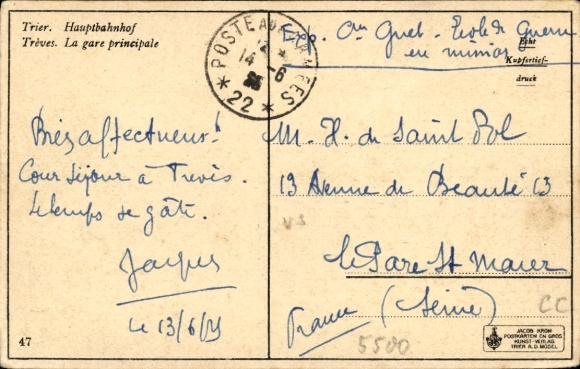 Trier. Hauptbahnhof
Trèves. La gare principale
POSTE AUX ARMÉES
14 - 6
* 22 *
Exp. Guet - Ecole de Guerre
en mission
Echt
Kupfertief-
druck
Bien affectueux
Cour séjour à Trèves.
Le temps se gâte.
Jacques
le 13/6/25
M. H. de Saint Pol
19 Avenue de Beauté 13
le Parc St Maur
(Seine)
France
VS
CC
5500
47
JACOB KRON
POSTKARTEN EN GROS
KUNST-VERLAG
TRIER A.D. MOSEL